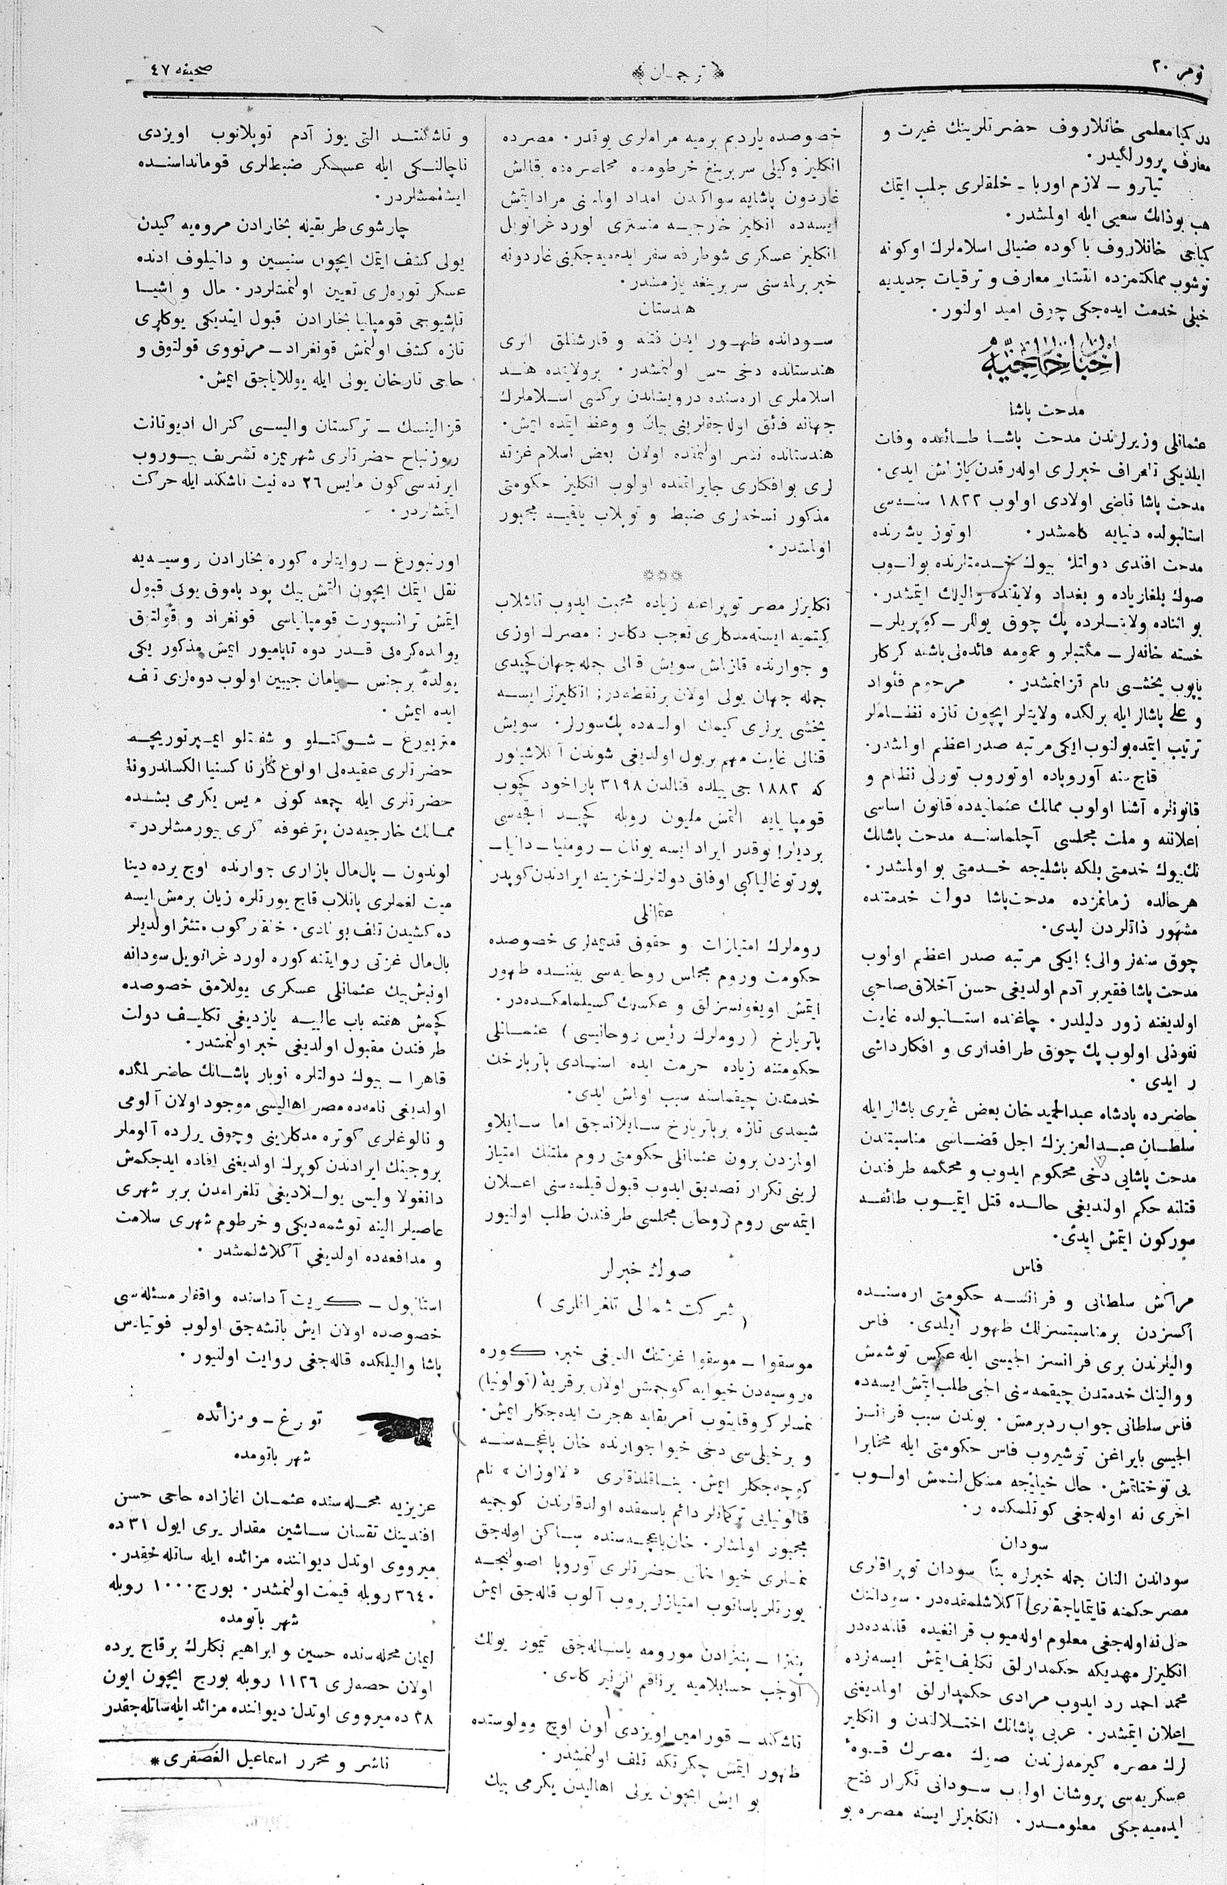 نومر ٢٠
﴿ ترجمان ﴾
صحيفه ٤٧
كيميا معلمى خانلاروف حضرتلرينك غيرت و
معارف پرورلگيدر.
تياترو ــ لازم اوربا ــ خلقلرى جلب ايتمك
هب بوذاتك سعيى ايله اولمشدر.
كيماجى خانلاروف باكوده ضيالى اسلاملرك اوكونه
توشوب مملكتمزده انتشار معارف و ترقيات جديديه
خيلى خدمت ايده‌جكى چوق اميد اولنور.
اخبار خارجيه
مدحت پاشا
عثمانلى وزيرلرندن مدحت پاشا طائفده وفات
ايلديكى تلغراف خبرلرى
مدحت پاشا قاضى اولادى اولوب ١٨٢٢ سنه‌سى
استانبولده دنيايه كلمشدر. اوتوز ياشرنده
مدحت افندى دولتك بيوك خدمتلرنده بولنوب
صوك بلغارياده و بغداد ولايتنده واليلك ايتمشدر.
بو اثناده ولايتلرده پك چوق يوللر ــ كوپريلر ــ
خسته خانه‌لر ــ مكتبلر و عمومه فائده‌لى باشنه كركار
ياپوب يخشى نام قزانمشدر. مرحوم فئواد
و على پاشالر ايله برلكده ولايتلر ايچون تازه نظاملر
ترتيب ايتمده بولنوب ايكى مرتبه صدر اعظم اولمشدر.
قاچ سنه آوروپاده اوتوروب تورلى نظام و
قانونلره آشنا اولوب ممالك عثمانيه‌ده قانون اساسى
اعلاننه و ملت مجلسى آچلماسنه مدحت پاشانك
بيوك خدمتى بلكه باشليجه خدمتى بو اولمشدر.
هر حالده زمانمزده مدحت پاشا دولت خدمتنده
مشهور ذاتلردن ايدى.
چوق سنه‌لر والى؛ ايكى مرتبه صدر اعظم اولوب
مدحت پاشا فقير بر آدم اولديغى حسن آخلاق صاحبى
اولديغنه زور دليلدر. چاغنده استانبولده غايت
نفوذلى اولوب پك چوق طرافدارى و افكارداشى
ايدى.
حاضرده پادشاه عبدالحميد خان بعض غيرى پاشالر ايله
سلطان عبدالعزيزك اجل قضاسى مناسبتندن
مدحت پاشايى دخى محكوم ايدوب و محكمه طرفندن
قتلنه حكم اولنديغى حالده قتل ايتميوب طائفه
سوركون ايتمش ايدى.
فاس
مراكش سلطانى و فرانسه حكومتى اره‌سنده
اكسزدن بر مناسبتسزلك ظهور ايلدى. فاس
واليلرندن برى فرانسز ايلچيسى ايله عكس توشمش
و والينك خدمتدن چيقمه‌سنى ايلچى طلب ايتمش ايسه‌ده
فاس سلطانى جواب رد برمش. بوندن سبب فرانسز
ايلچيسى بايراغن توشيروب فاس حكومتى ايله مخابرا
يى توختاتمش. حال خيليجه مشكل‌لشمش اولوب
اخرى نه اوله‌جغى كوتلمكده در.
سودان
سوداندن النان جمله خبرلره بناء سودان توپراقلرى
مصر حكمنه قايتماياجقلرى آكلاشلمقده‌در. سوداننك
حالى نه اوله‌جغى معلوم اوله‌ميوب قرانغيده قالمه‌ده‌در
انكليزلر مهديكه حكمدارلق تكليف ايتمش ايسه‌لرده
محمد احمد رد ايدوب مرادى حكمدارلق اولمديغى
اعلان ايتمشدر. عربى پاشانك اختلالندن و انكليز
لرك مصره كيرمه‌لرندن صوك مصرك قوۀ
عسكريه‌سى پروشان اولوب سودانى تكرار فتح
ايده‌ميه‌جكى معلومدر. انكليزلر ايسه مصره بو
خصوصده ياردم برميه مرامالرى يوقدر. مصرده
انكليز وكيلى سر برينغ خرطومده محاصره‌ده قالمش
غاردون پاشايه سواكدن امداد اولنمنى مراد ايتمش
ايسه‌ده انكليز خارجيه منسترى لورد غرانويل
انكليز عسكرى شو طرفه سفر ايده‌ميه‌جكنى غاردونه
خبر برلمه‌سنى سر برينغه يازمشدر.
هندستان
سودانده ظهور ايدن فتنه و قارشلق اثرى
هندستانده دخى حس اولنمشدر. بر ولايتده هند
اسلاملرى اره‌سنده درويشلندن بركشى اسلاملرك
جهانه فائق اوله‌جقلرينى بيان و وعظ ايتده ايمش.
هندستانده نشر اولنمقده اولان بعض اسلام غزته
لرى بو افكارى جايراتمقده اولوب انكليز حكومتى
مذكور نسخه‌لرى ضبط و توپلاب ياقيه مجبور
اولمشدر.
***
انكليزلر مصر توپراغنه زياده محبت ايدوب تاشلاب
كيتميه ايسته‌مدكلرى تعجب دكلدر: مصرك اوزى
و جوارنده قازلمش سويش قنالى جمله جهان كچيدى
جمله جهان يولى اولان بر نقطه‌در؛ انكليزلر ايسه
يخشى يرلرى كيمك اولسه‌ده پك سورلر. سويش
قنالى غايت مهم بر يول اولديغى شوندن آكلاشيلور
كه ١٨٨٢ جى ييلده قنالدن ٣١٩٨ پاراخود كچوب
قومپانيايه التمش مليون روبله كچيد آقچه‌سى
برديلر! بوقدر ايراد ايسه يونان ــ رومنيا ــ دانيا ــ
پورتوغاليا كبى اوفاق دولتلرك خزينه ايرادندن كوپدر
عثمانلى
روملرك امتيازات و حقوق قديمه‌لرى خصوصده
حكومت و روم مجلس روحانيه‌سى بيننده ظهور
ايتمش اويغونسزلق و عكسيك كسيلمامكده‌در.
پاتريارخ (روملرك رئيس روحانيسى) عثمانلى
حكومتنه زياده حرمت ايده
خدمتدن چيقماسنه سبب اولمش ايدى.
شيمدى تازه بر پاتريارخ سايلانه‌جق اما سايلاو
اولزدن برون عثمانلى حكومتى روم ملتنك امتياز
لرينى تكرار تصديق ايدوب قبول قيلمه‌سنى اعلان
ايتمه‌سى روم روحانى مجلسى طرفندن طلب اولنيور
صوك خبرلر
(شركت شمالى تلغرافلرى)
موسقوا ــ موسقوا غزتنك الديغى خبره كوره
روسيه‌دن خيوايه كوچمش اولان بر قريۀ (قولونيا)
نمسلر كرو قايتوب آمريقايه هجرت ايده‌جكلر ايمش.
و بر خيلى‌سى دخى خيوا جوارنده خان باغچه‌سنه
كوچه‌جكلر ايمش. بناقلدقلرى «لااوزان» نام
قالونيايى تركمانلر دائم باسمقده اولدقلرندن كوچميه
مجبور اولمشلر. خان باغچه‌سنده ساكن اوله‌جق
نمسلرى خيوا خانى حضرتلرى آوروپا اصولنجه
يورتلر ياساتوب امتيازلر بروب آلوب قاله‌جق ايمش
پنزا ــ پنزادن مورومه ياساله‌جق تيمور يولك
اوچب حسابلاميه
تاشكند ــ قورامين اويزدى اون اوچ وولوستده
ظهور ايتمش چكرتكه تلف اولنمشدر.
بو ايش ايچون يرلى اهاليدن يكرمى بيك
و تاشكنتد التى يوز آدم توپلانوب اويزدى
ناچالنيكى ايله عسكر ضبط‌لرى قومانداسنده
ايشلمشلردر.
چارشوى طريقيله بخارادن مروه‌يه كيدن
يولى كشف ايتمك ايچون سنيسين و دانيلوف ادنده
عسكر توره‌لرى تعيين اولنمشلردر. مال و اشيا
تاشيوجى قومپانيا بخارادن قبول ايتديكى يوكلرى
تازه كشف اولنمش قونغراد ــ مرتووى قولتوق و
حاجى تارخان يولى ايله يوللاياجق ايمش.
قزالينسك ــ تركستان واليسى كنرال اديوتانت
روزنباح حضرتلرى شهريمزه تشريف بيوروب
ايرته‌سى كون مايس ٢٦ ده نيت تاشكند ايله حركت
ايتمشلردر.
اورنبورغ ــ روايتلره كوره بخارادن روسيه‌يه
نقل ايتمك ايچون التمش بيك پود پاموق يونى قبول
ايتمش ترانسپورت قومپانياسى قونغراد و قولتوق
يولنده كره‌لى قدر دوه تاپاميور ايمش مذكور يكى
يولده برجنس ــ يامان چيبين اولوب دوه‌لرى تلف
ايده ايمش.
پتربورغ ــ شوكتلو و شفقتلو ايمپرتوريچه
حضرتلرى عقيده‌لى اولوغ كناز كسنيا الكساندرونا
حضرتلرى ايله جمعه كونى مايس يكرمى بشده
ممالك خارجيه‌دن پترغوفه كرى بيورمشلردر.
لوندون ــ پال‌مال بازارى جوارنده اوچ يرده دينا
ميت لغملرى پاتلاب قاچ يورتلره زيان برمش ايسه
ده كشيدن تلف بولمادى. خلقلر كوب متأثر اولديلر
پال‌مال غزتى روايتنه كوره لورد غرانويل سودانه
اونبش بيك عثمانلى عسكرى يوللامق خصوصده
كچمش هفته باب عاليه يازديغى تكليف دولت
طرفندن مقبول اولديغى خبر اولنمشدر.
قاهرا ــ بيوك دولتلره نوبار پاشانك حاضرلمكده
اولديغى نامه‌ده مصر اهاليسى موجود اولان آلومى
و نالوغلرى كوتره مدكلارينى و چوق يرلرده آلوملر
بورجينك ايرادندن كوپرك اولديغنى افاده ايده‌جكمش
دانغولا واليسى يوللاديغى تلغرامدن بربر شهرى
عاصيلر الينه توشمه‌ديكى و خرطوم شهرى سلامت
و مدافعه‌ده اولديغى آكلاشلمشدر.
استانبول ــ كريت آداسنده واقفلر مسئله‌سى
خصوصده اولان ايش باتشه‌جق اولوب فوتيادس
پاشا واليلكده قاله‌جغى روايت اولنيور.
تورغ ــ و مزائده
شهر باتومده
عزيزيه محله‌سنده عثمان اغازاده حاجى حسن
افندينك نقسان ساشين مقدار يرى ايول ٣١ ده
ميرووى اوتدل ديواننده مزائده ايله ساتله‌جقدر.
٣٦٤٠ روبله قيمت اولنمشدر. بورج ١٠٠٠ روبله
شهر باتومده
ايمان محله‌سنده حسين و ابراهيم بكلرك برقاچ يرده
اولان حصه‌لرى ١١٢٦ روبله بورج ايچون ايون
٢٨ ده ميرووى اوتدل ديواننده مزائد ايله ساتله‌جقدر
ناشر و محرر اسماعيل الغصفرى *